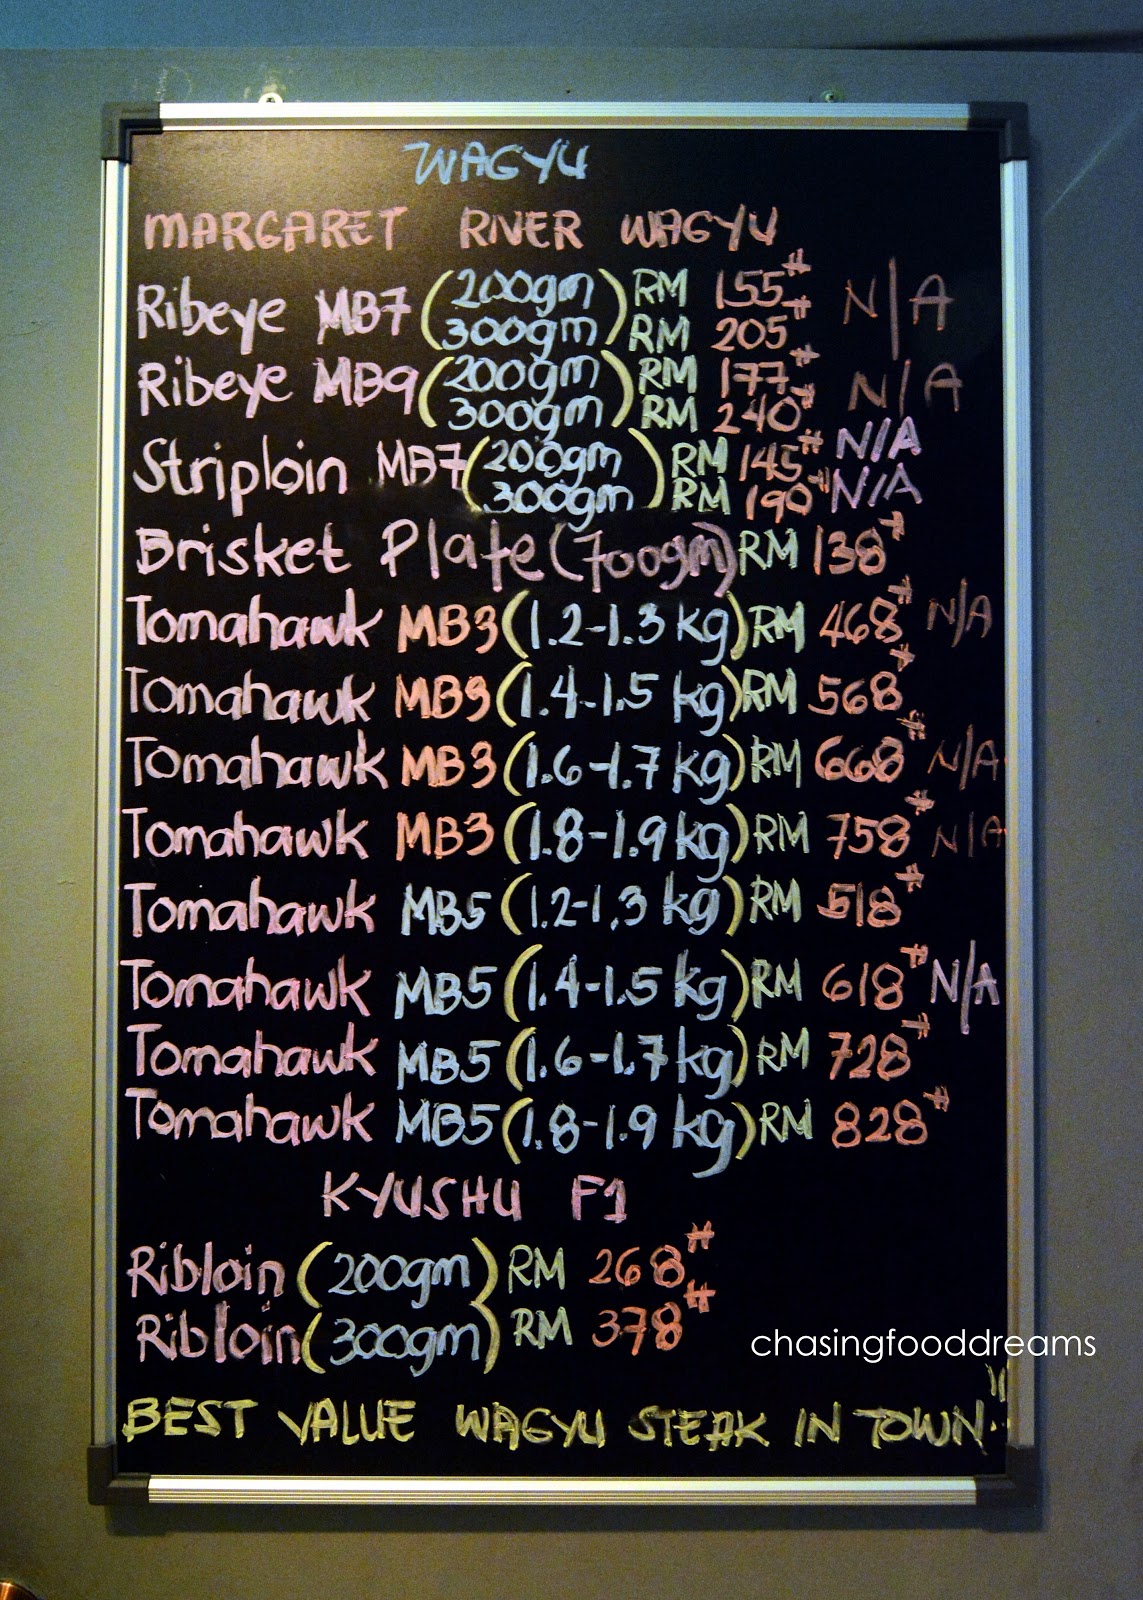 WAGYU
MARGARET RIVER WAGYU
Ribeye MB7 (200gm) RM 155# N/A
(300gm) RM 205#
Ribeye MB9 (200gm) RM 177# N/A
(300gm) RM 240#
Striploin MB7 (200gm) RM 145# N/A
(300gm) RM 190# N/A
Brisket Plate (700gm) RM 138#
Tomahawk MB3 (1.2-1.3 kg) RM 468# N/A
Tomahawk MB3 (1.4-1.5 kg) RM 568#
Tomahawk MB3 (1.6-1.7 kg) RM 668# N/A
Tomahawk MB3 (1.8-1.9 kg) RM 758# N/A
Tomahawk MB5 (1.2-1.3 kg) RM 518#
Tomahawk MB5 (1.4-1.5 kg) RM 618# N/A
Tomahawk MB5 (1.6-1.7 kg) RM 728#
Tomahawk MB5 (1.8-1.9 kg) RM 828#
KYUSHU F1
Ribloin (200gm) RM 268#
Ribloin (300gm) RM 378#
chasingfooddreams
BEST VALUE WAGYU STEAK IN TOWN!!